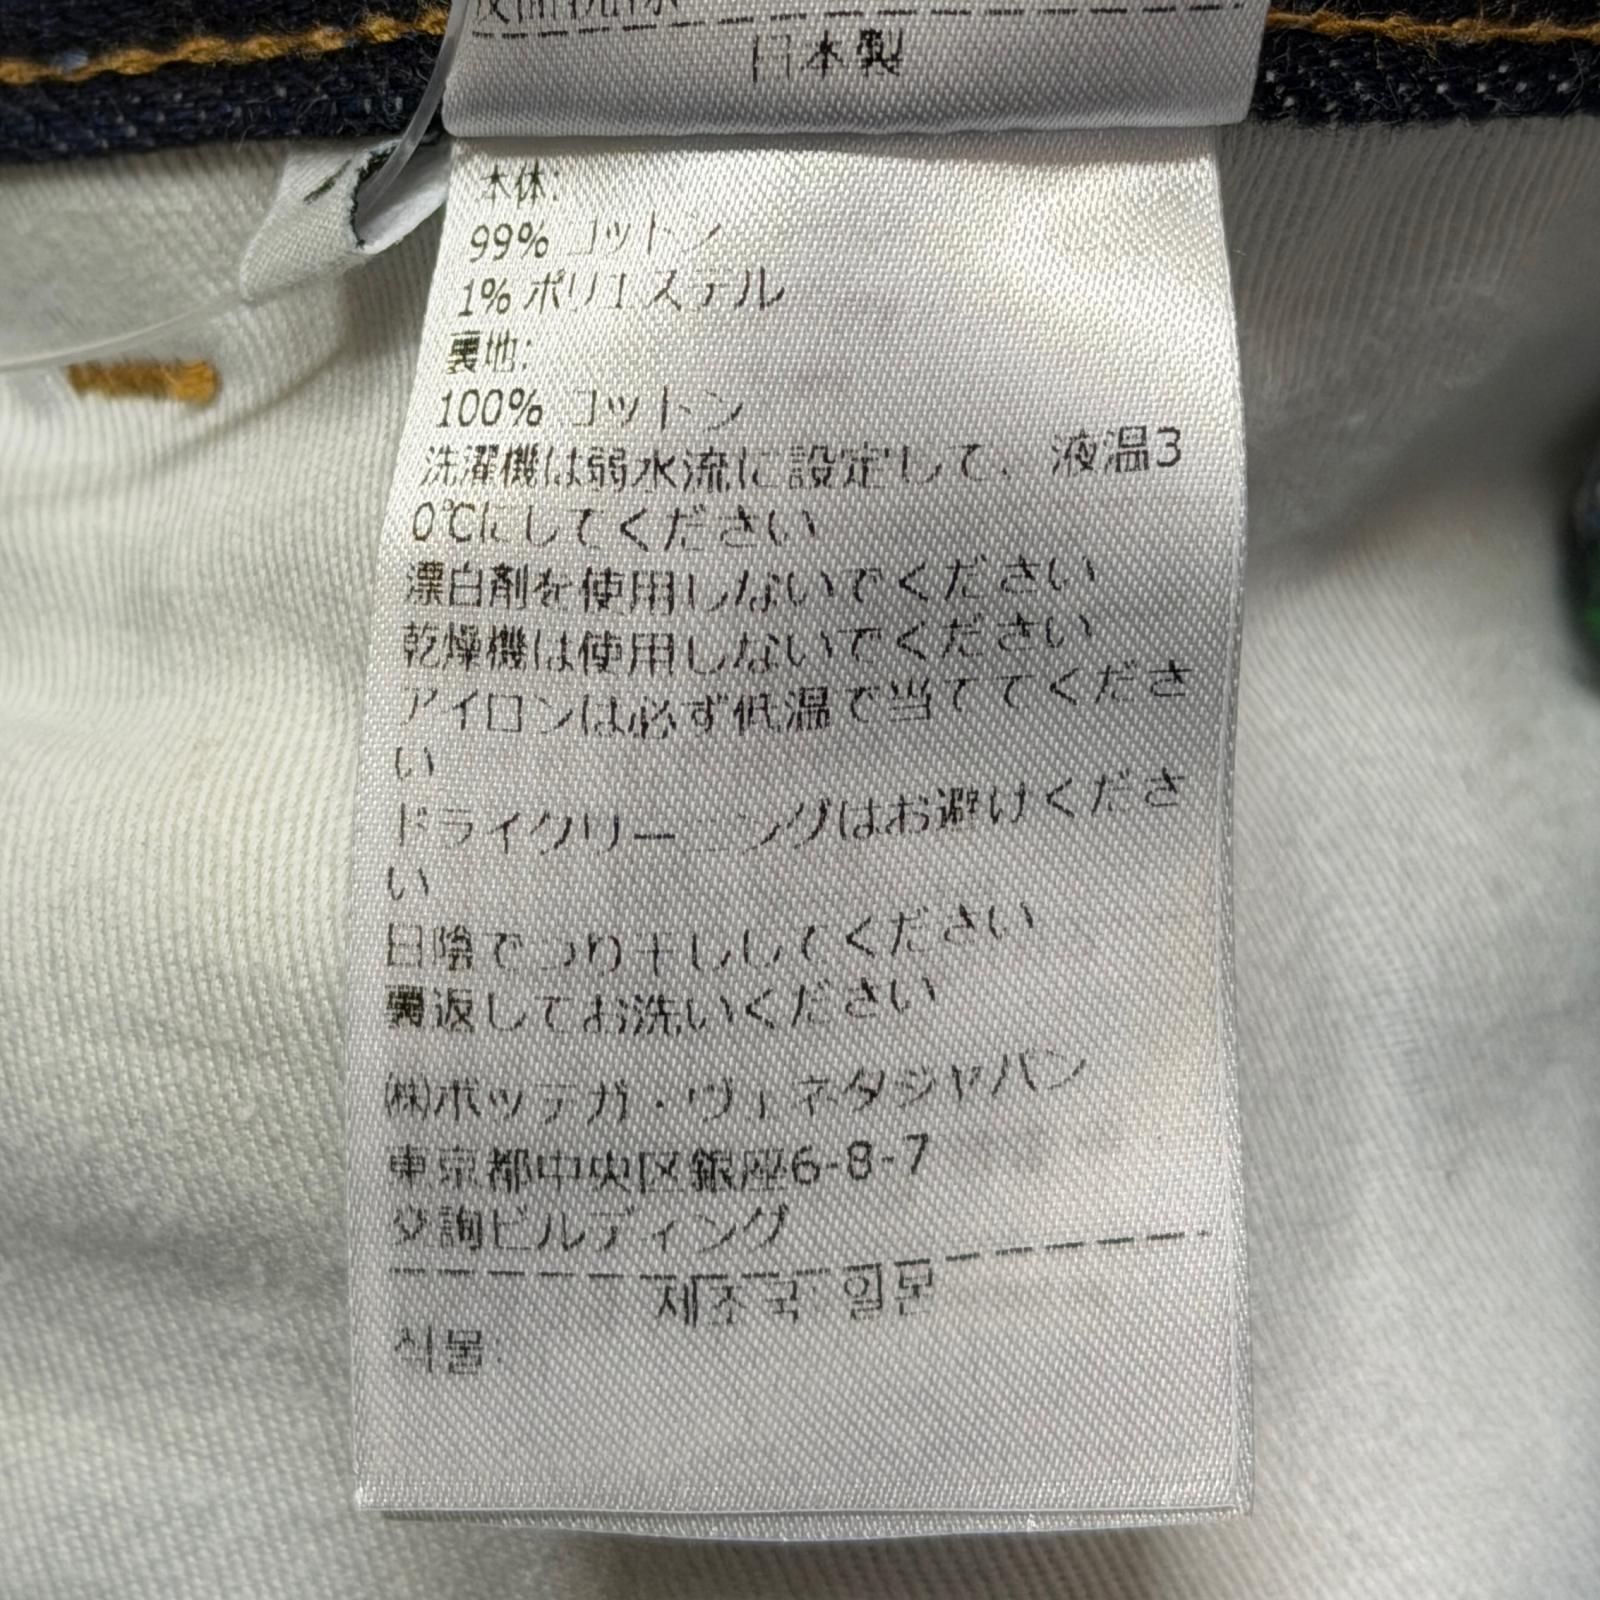 日本製
本体:
99% コットン
1% ポリエステル
裏地:
100% コットン
洗濯機は弱水流に設定して、液温3
0℃にしてください
漂白剤を使用しないでください
乾燥機は使用しないでください
アイロンは必ず低温で当ててくださ
い
ドライクリーニングはお避けくださ
い
日陰でつり干ししてください
裏返してお洗いください
㈱ボッテガ・ヴェネタジャパン
東京都中央区銀座6-8-7
交詢ビルディング
제조국 일본
직물: